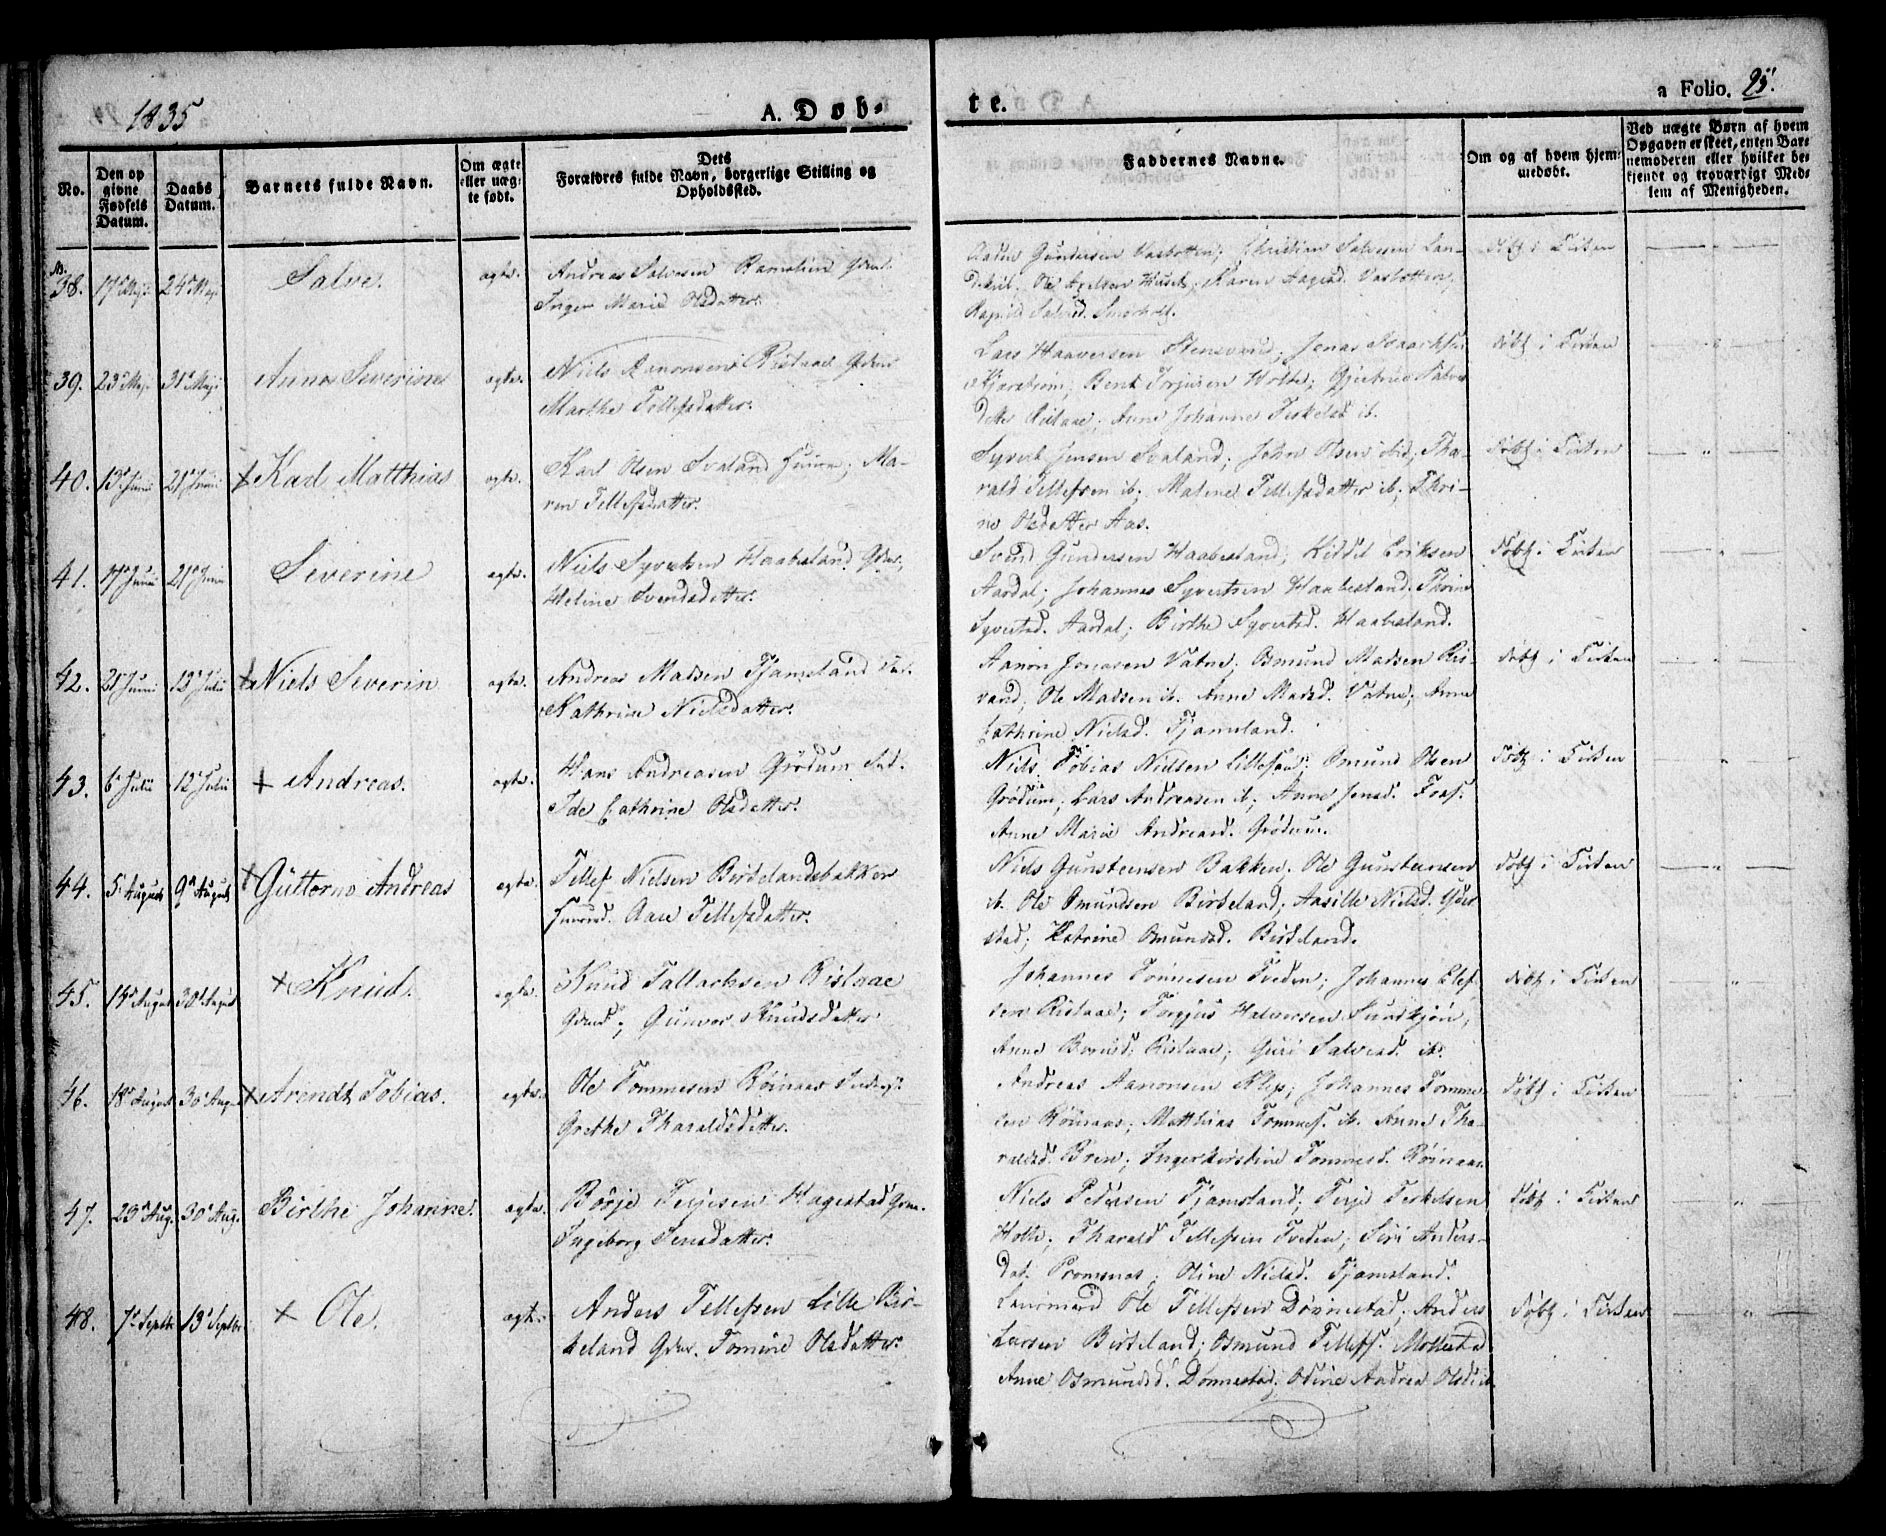 1835 A. Døb- te. a Folio. 25.
No.
Den opgivne Fødsels Datum.
Daabs Datum.
Barnets fulde Navn.
Om ægte eller uægte født.
Dets Forældres fulde Navn, borgerlige Stilling og Opholdssted.
Faddernes Navne.
Om og af hvem hjemmedøbt.
Ved uægte Børn af hvem Opgaven er skeet, enten Barnemoderen eller hvilket bekjendt og troværdigt Medlem af Menigheden.
No. 38. 17de Maji 24de Maji Salve. ægte. Andreas Salvesen
Inger Marie Olsdatter.
Gundersen Vasbotten; Christian Salvesen Lan-
Ole Axelsen Huset; Karen Aagesd. Vasbotten;
Ragnild Salvesd.
døbt i Kirken
39. 23de Maji 31te Maji Anne Severine ægte. Niels Aanonsen Rislaae Gdmd.
Marthe Tellefsdatter.
Lars Haaversen Stensvand; Jonas Isaachsen
Bent Torjusen Holte; Gjertrud Salves
datter Rislaae; Anne Johanne Terkelsd. ib.
døbt i Kirken
40. 13de Junii 21de Junii + Karl Matthias ægte. Karl Olsen Svaland Huusm; Ma-
ren Tellefsdatter.
Syvert Jensen Svaland; John Olsen ibid; Tha-
rald Tellefsen ib; Malene Tellefsdatter ib; Thri-
ne Olsdatter Aas.
døbt i Kirken
41. 17de Junii 21de Junii Severine ægte. Niels Syvertsen Haabesland Gdmd,
Heline Svendsdatter.
Svend Gundersen Haabesland; Kiddel Eriksen
Aardal; Johannes Syvertsen Haabesland. Thrine
Syvertsd. Aardal; Birthe Syvertsd. Haabesland.
døbt i Kirken
42. 21de Junii 12te Julii + Niels Severin ægte. Andreas Madsen Tjamsland
Kathrine Nielsdatter.
Aanon Jonasen Vatne; Osmund Madsen Ris-
vand; Ole Madsen ib. Anne Madsd. Vatne; Anne
Cathrine Nielsd. Tjamsland.
døbt i Kirken
43. 6te Julii 12te Julii + Andreas. ægte. Hans Andreasen Grødum Ind.
Ide Cathrine Olsdatter.
Niels Tobias Nielsen Lillesan; Osmund Olsen
Grødum; Lars Andreasen ib; Anne Jensd. Foss.
Anne Marie Andreasd. Grødum.
døbt i Kirken
44. 5te August 9de August + Guttorm Andreas ægte. Tellef Nielsen Birkelandsbakken
Huusmd. Aase Tellefsdatter.
Niels Gunsteensen Bakken. Ole Gunsteensen
ib. Ole Osmundsen Birkeland; Aasille Nielsd.
stad; Katrine Osmundsd. Birkeland.
døbt i Kirken
45. 14de August 30te August + Knud. ægte. Knud Tallachsen Rislaae
Gdmd; Gunvor Knudsdatter
Johannes Tønnesen Tveden; Johannes Olef-
sen Rislaae; Torgjus Halversen Sundtjøn;
Anne Rislaae; Guri Salvesd. ib.
døbt i Kirken
46. 18de August 30te August + Arendt Tobias. ægte. Ole Tommesen Røinaas Inders:
Grethe Tharaldsdatter.
Andreas Aanonsen Klep; Johannes Tomme-
sen Røinaas; Matthias Tommes. ib. Anne Tha-
raldsd. Bren; Ingerkirstine Tommesd. Røinaas.
døbt i Kirken
47. 23de Aug. 30te Aug. Birthe Johanne. ægte. Børje Terjesen Hagestad Gdm.
Ingeborg Jensdatter.
Niels Pedersen Tjamsland; Terje Terkelsen
Holte; Tharald Tellefsen Tveden; Siri Anders-
dat. Promsnes; Oline Nielsd. Tjamsland.
døbt i Kirken
48. 7de Septbr 13de Septbr. + Ole. ægte. Anders Tellefsen Lille Bir-
keland Gdm. Tomine Olsdatter.
Lensmand Ole Tellefsen Dønnestad; Anders
Larsen Birkeland; Osmund Tellefs. Mollestad
Anne Osmundsd. Dønnestad; Oline Andrea Olsd. ib.
døbt i Kirken